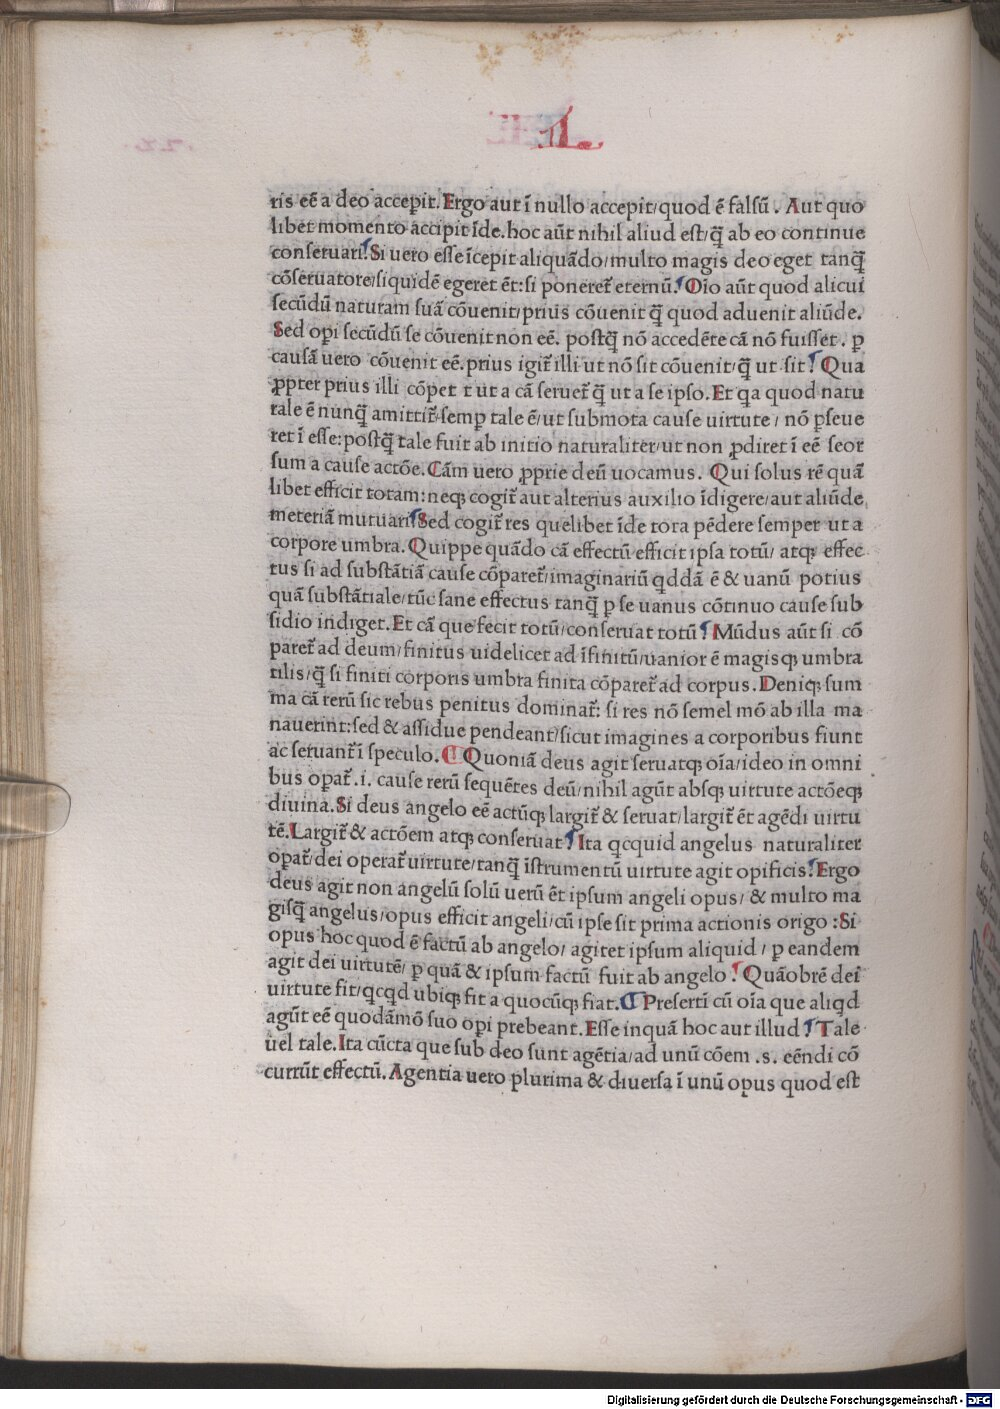 .L.
ris eē a deo accepit. Ergo aut ī nullo accepit/quod ē falsū. Aut quo
libet momento accipit īde. hoc aūt nihil aliud est/q̄ ab eo continue
conseruari. Si uero esse īcepit aliquādo/multo magis deo eget tanq̄
cōseruatore/siquidē egeret ēt: si poneret̄ eternū. Oīo aūt quod alicui
secūdū naturam suā cōuenit/prius cōuenit q̄ quod aduenit aliūde.
Sed opi secūdū se cōuenit non eē. postq̄ nō accedēte cā nō fuisset. p
causā uero cōuenit eē. prius igit̄ illi ut nō sit cōuenit/q̄ ut sit. Qua
ꝓpter prius illi cōpet t ut a cā seruet̄ q̄ ut a se ipso. Et qa quod natu
tale ē nunq̄ amittit̄/semp tale ē/ut submota cause uirtute/ nō pseue
ret ī esse: postq̄ tale fuit ab initio naturaliter/ut non ꝓdiret ī eē seor
sum a cause actōe. Cām uero ꝓprie deū uocamus. Qui solus rē quā
libet efficit totam: neqꝫ cogit̄ aut alterius auxilio īdigere/aut aliūde
meteriā mutuari. Sed cogit̄ res quelibet īde tota pēdere semper ut a
corpore umbra. Quippe quādo cā effectū efficit ipsa totū/ atqꝫ effec
tus si ad substātiā cause cōparet̄/imaginariū qddā ē & uanū potius
quā substātiale/tūc sane effectus tanq̄ p se uanus cōtinuo cause sub
sidio indiget. Et cā que fecit totū/conseruat totū. Mūdus aūt si cō
paret̄ ad deum/finitus uidelicet ad īfinitū/uanior ē magisqꝫ umbra
tilis/q̄ si finiti corporis umbra finita cōparet̄ ad corpus. Deniqꝫ sum
ma cā rerū sic rebus penitus dominat̄: si res nō semel mō ab illa ma
nauerint: sed & assidue pendeant/sicut imagines a corporibus fiunt
ac seruant̄ ī speculo. Quoniā deus agit seruatqꝫ oīa/ideo in omni
bus opat̄ .i. cause rerū sequētes deū/nihil agūt absqꝫ uirtute actōeqꝫ
diuina. Si deus angelo eē actūqꝫ largit̄ & seruat/largit̄ ēt agēdi uirtu
tē. Largit̄ & actōem atqꝫ conseruat. Ita qcquid angelus naturaliter
opat̄/dei operat̄ uirtute/tanq̄ īstrumentū uirtute agit opificis. Ergo
deus agit non angelū solū uerū ēt ipsum angeli opus/ & multo ma
gisq̄ angelus/opus efficit angeli/cū ipse sit prima actionis origo: Si
opus hoc quod ē factū ab angelo/ agitet ipsum aliquid/ p eandem
agit dei uirtutē/ p quā & ipsum factū fuit ab angelo. Quāobrē dei
uirtute fit/qcqd ubiqꝫ fit a quocūqꝫ fiat. Presertī cū oīa que aliqd
agūt eē quodāmō suo opi prebeant. Esse inquā hoc aut illud. Tale
uel tale. Ita cūcta que sub deo sunt agētia/ad unū cōem .s. eēndi cō
currūt effectū. Agentia uero plurima & diuersa ī unū opus quod est
Digitalisierung gefördert durch die Deutsche Forschungsgemeinschaft - DFG